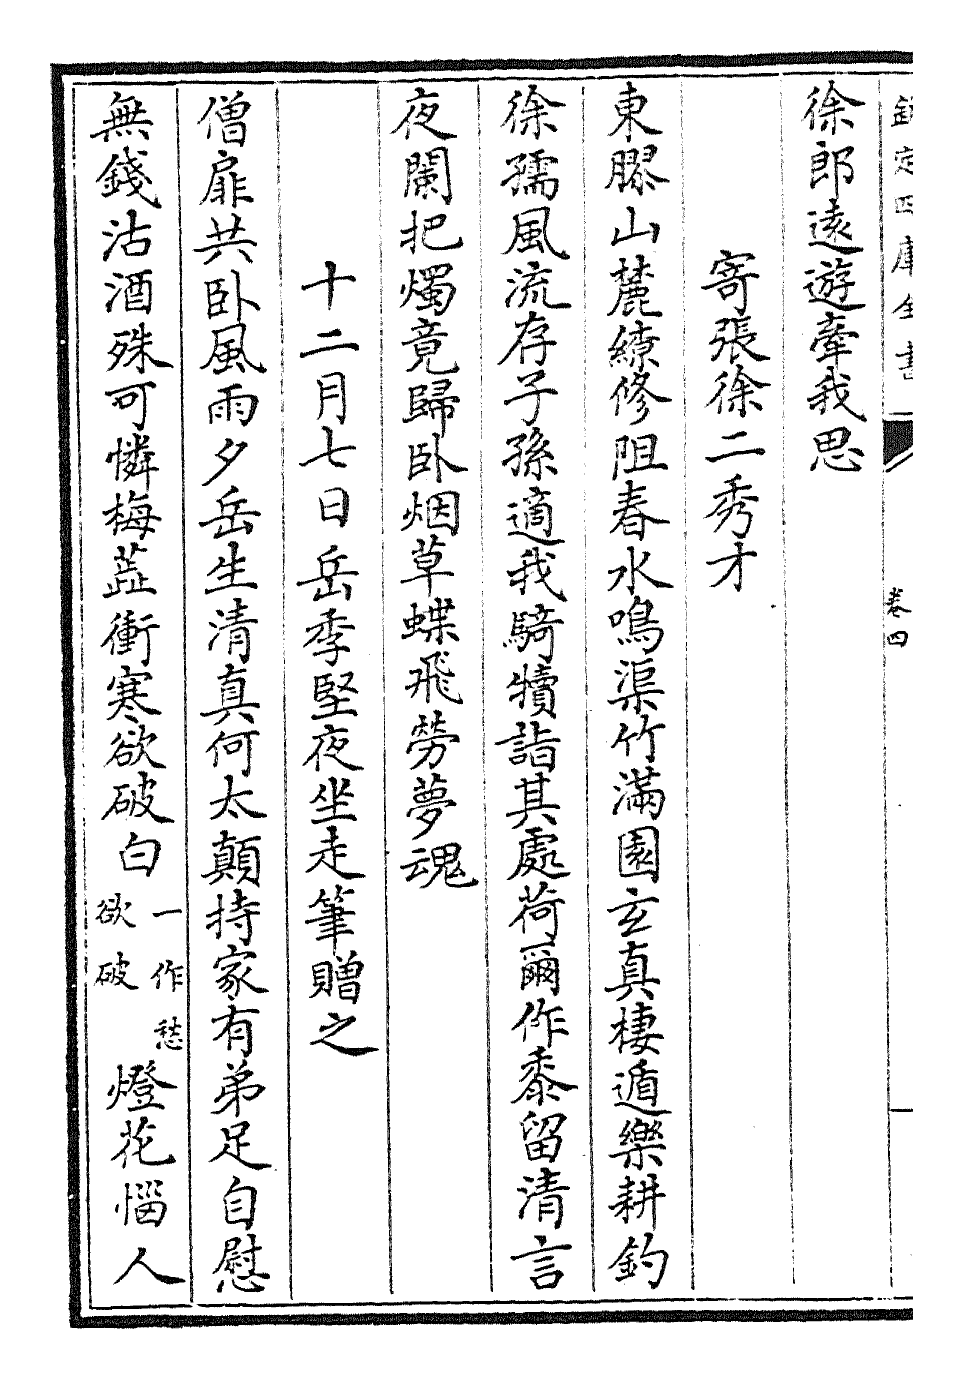 欽定四庫全書
卷四
徐郎遠遊牽我思
寄張徐二秀才
東膠山麓繚修阻春水鳴渠竹滿園玄真棲遁樂耕釣
徐孺風流存子孫適我騎犢詣其處荷爾作黍留清言
夜闌把燭竟歸卧烟草蝶飛勞夢魂
十二月七日岳季堅夜坐走筆贈之
僧扉共卧風雨夕岳生清真何太顛持家有弟足自慰
無錢沽酒殊可憐梅蘂衝寒欲破白一作愁欲破燈花惱人